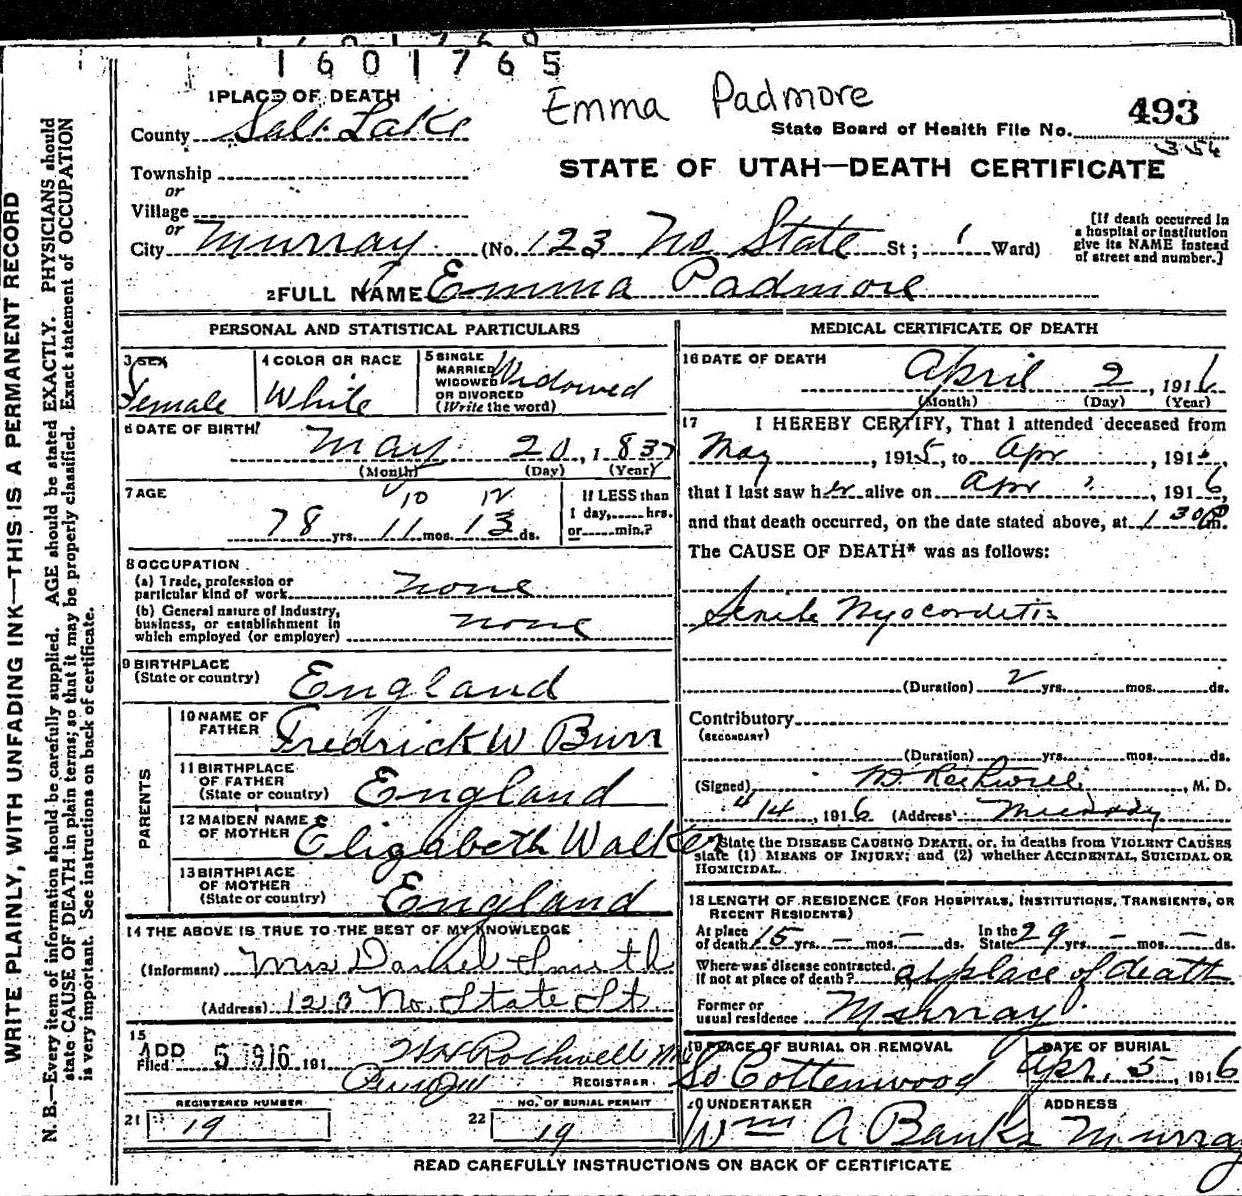 1601765
Emma Padmore
1 PLACE OF DEATH
County Salt Lake
State Board of Health File No. 493
354
STATE OF UTAH—DEATH CERTIFICATE
Township
or
Village
or
City Murray (No. 123 No State St; 1 Ward)
[If death occurred in a hospital or institution give its NAME instead of street and number.]
2 FULL NAME Emma Padmore
PERSONAL AND STATISTICAL PARTICULARS
3 SEX Female
4 COLOR OR RACE White
5 SINGLE MARRIED WIDOWED OR DIVORCED (Write the word) Widowed
6 DATE OF BIRTH May 20, 1837
(Month) (Day) (Year)
7 AGE 10 12
78 yrs. 11 mos. 13 ds.
If LESS than 1 day, hrs. or min.?
8 OCCUPATION
(a) Trade, profession or particular kind of work none
(b) General nature of Industry, business, or establishment in which employed (or employer) none
9 BIRTHPLACE (State or country) England
PARENTS
10 NAME OF FATHER Fredrick W Burr
11 BIRTHPLACE OF FATHER (State or country) England
12 MAIDEN NAME OF MOTHER Elizabeth Walker
13 BIRTHPLACE OF MOTHER (State or country) England
14 THE ABOVE IS TRUE TO THE BEST OF MY KNOWLEDGE
(Informant) Mrs Daniel Smith
(Address) 123 No. State St.
15
Filed 5 1916 191 Rockwell
REGISTRAR
21 REGISTERED NUMBER 19
22 NO. OF BURIAL PERMIT 19
MEDICAL CERTIFICATE OF DEATH
16 DATE OF DEATH April 2, 1916
(Month) (Day) (Year)
17 I HEREBY CERTIFY, That I attended deceased from
May, 1915, to Apr, 191
that I last saw her alive on Apr, 1916,
and that death occurred, on the date stated above, at 1 30 P m.
The CAUSE OF DEATH* was as follows:
Senile Myocarditis
(Duration) 2 yrs. mos. ds.
Contributory
(SECONDARY)
(Duration) yrs. mos. ds.
(Signed) Rockwell, M. D.
4/4, 1916 (Address) Murray
*State the DISEASE CAUSING DEATH, or, in deaths from VIOLENT CAUSES
state (1) MEANS OF INJURY; and (2) whether ACCIDENTAL, SUICIDAL OR
HOMICIDAL.
18 LENGTH OF RESIDENCE (FOR HOSPITALS, INSTITUTIONS, TRANSIENTS, OR
RECENT RESIDENTS)
At place of death 15 yrs. — mos. — ds. In the State 29 yrs. — mos. — ds.
Where was disease contracted, If not at place of death? at place of death
Former or usual residence Murray
19 PLACE OF BURIAL OR REMOVAL So Cottenwood
DATE OF BURIAL Apr. 5, 1916
20 UNDERTAKER Wm A Banks
ADDRESS Murray
READ CAREFULLY INSTRUCTIONS ON BACK OF CERTIFICATE
WRITE PLAINLY, WITH UNFADING INK—THIS IS A PERMANENT RECORD
N. B.—Every item of information should be carefully supplied. AGE should be stated EXACTLY. PHYSICIANS should
state CAUSE OF DEATH in plain terms, so that it may be properly classified. Exact statement of OCCUPATION
is very important. See instructions on back of certificate.